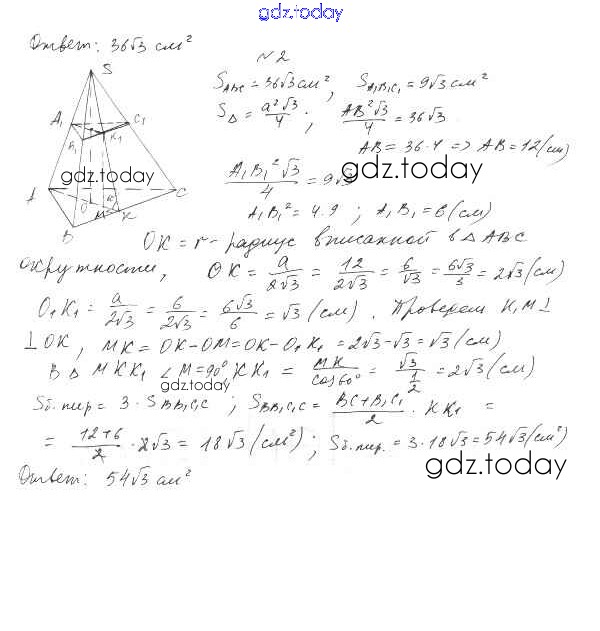 gdz.today
Ответ: 36√3 см²
№2
S_ABC = 36√3 см², S_A₁B₁C₁ = 9√3 см²
S_Δ = a²√3/4; AB²√3/4 = 36√3
AB = 36·4 => AB = 12 (см)
A₁B₁²√3/4 = 9√3
A₁B₁² = 4·9; A₁B₁ = 6 (см)
S
A₁ C₁
B₁ K₁
gdz.today
gdz.today
A O M K C
B
OK = r - радиус вписанной в ΔABC
окружности, OK = a/2√3 = 12/2√3 = 6/√3 = 6√3/3 = 2√3 (см)
O₁K₁ = a/2√3 = 6/2√3 = 6√3/6 = √3 (см). Проведем K₁M ⊥
⊥ OK, MK = OK - OM = OK - O₁K₁ = 2√3 - √3 = √3 (см)
В Δ MKK₁ ∠M = 90° KK₁ = MK/cos60° = √3/½ = 2√3 (см)
gdz.today
Sб.пир = 3 · S_BB₁C₁C; S_BB₁C₁C = BC + B₁C₁/2 · KK₁ =
= 12+6/2 · 2√3 = 18√3 (см²); Sб.пир. = 3·18√3 = 54√3 (см²)
gdz.today
Ответ: 54√3 см²